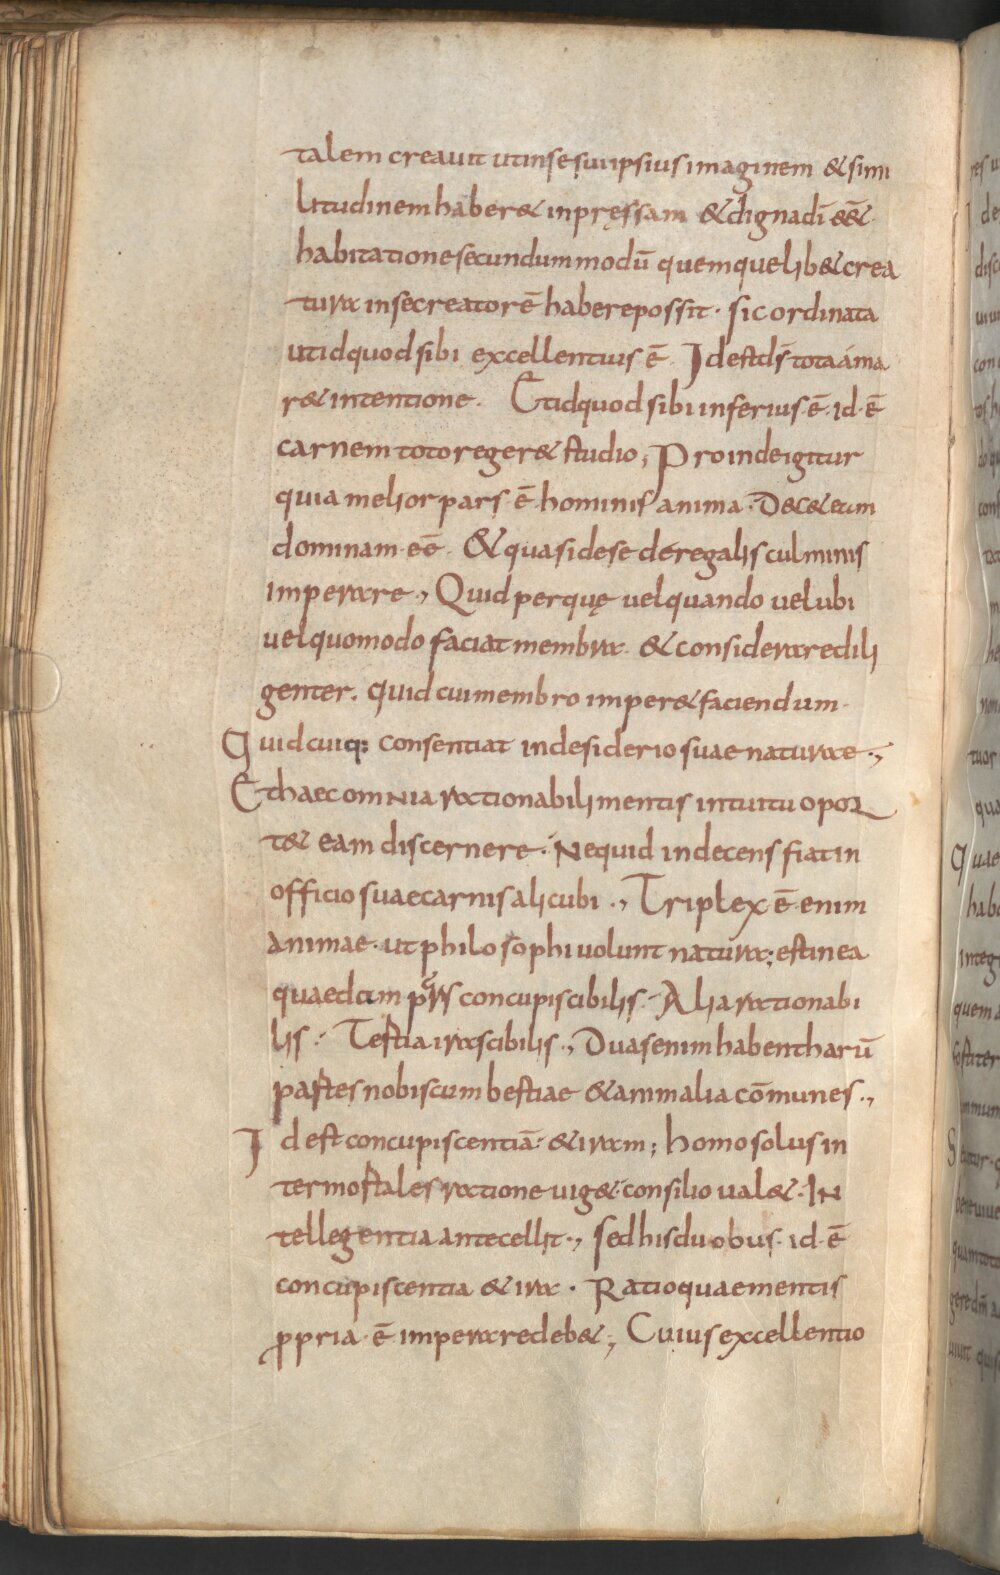 talem creauit ut in se sui ipsius imaginem & simi
litudinem haber& inpręssam & digna dī eē&
habitatione secundum modū quem quelib& crea
tura in se creatorē habere possit · sic ordinata
ut id quod sibi excellentius ē Id est dm̄ tota ama
r& intentione · Et id quod sibi inferius ·ē· id ·ē
carnem toto reger& studio ; Proinde igitur
quia melior pars ·ē· hominis anima · Dec& eam
dominam ·eē· & quasi de sede regalis culminis
imperare ., Quid per quę uel quando uel ubi
uel quomodo faciat membra · & considerare dili
genter . quid cui membro imper& faciendum ·
Quid cuiq; consentiat in desiderio suae naturae .,
Et haec omnia rationabili mentis intuitu opor
t& eam discernere · Ne quid indecens fiat in
officio suae carnis alicubi ., Triplex ·ē· enim
animae · ut philosophi uolunt natura ; est in ea
quaedam pars concupiscibilis · Alia rationabi
lis · Tertia irascibilis ., Duas enim habent harū
partes nobiscum bestiae & animalia cōmunes .,
Id est concupiscentiā · & iram ; homo solus in
ter mortales ratione uig& · consilio ual& · In
tellegentia antecellit ., sed his duobus · id ·ē
concupiscentia & ira · Ratio quae mentis
ꝓpria ·ē· imperare deb& ; Cuius excellentio